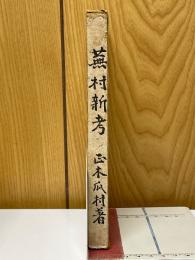 蕪村新考 正木瓜村著